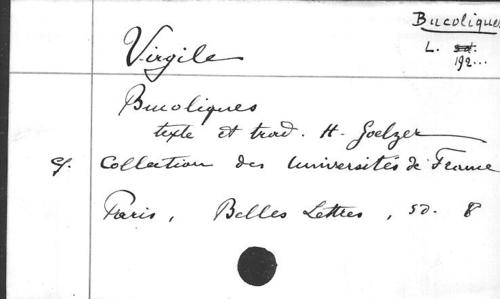 Bucoliques
L. s.d.
192...
Virgile
Bucoliques
texte et trad. H. Goelzer
Cf. Collection des Universités de France
Paris, Belles Lettres, s.d. 8